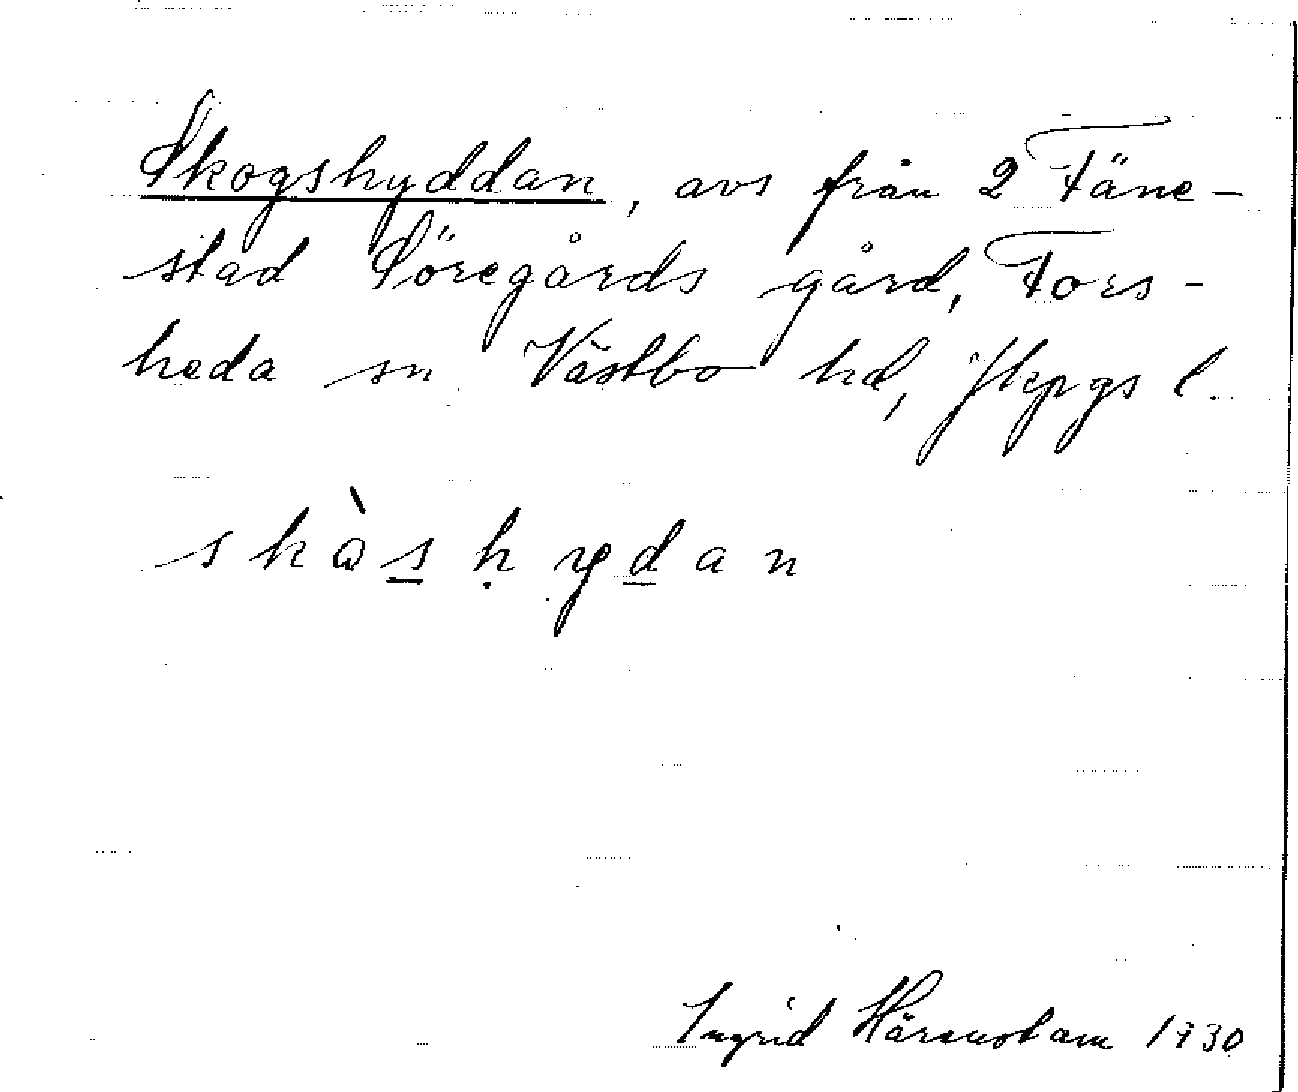 Skogshyddan, avs från 2 Fäne-
stad Söregårds gård, Fors-
heda sn Västbo hd, Jkpgs l.
skɑ̀s̲ ḥyd̲an
Ingrid Härenstam 1930